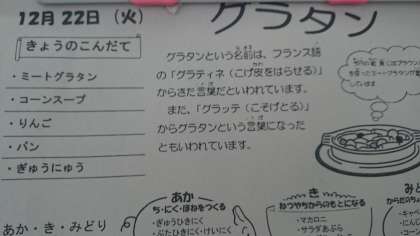 12月 22日（火）
グラタン
きょうのこんだて
・ミートグラタン
・コーンスープ
・りんご
・パン
・ぎゅうにゅう
グラタンという名前は、フランス語
の「グラティネ（こげ皮をはらせる）」
からきた言葉だといわれています。
また、「グラッテ（こそげとる）」
からグラタンという言葉になった
ともいわれています。
あか・き・みどり
あか
ち・にく・ほねをつくる
・ぎゅうひきにく
・ぶたひきにく・けいにく
き
ねつやちからのもとになる
・マカロニ
・サラダあぶら
みど
からだのち
・キャ
・にんじ
・コー